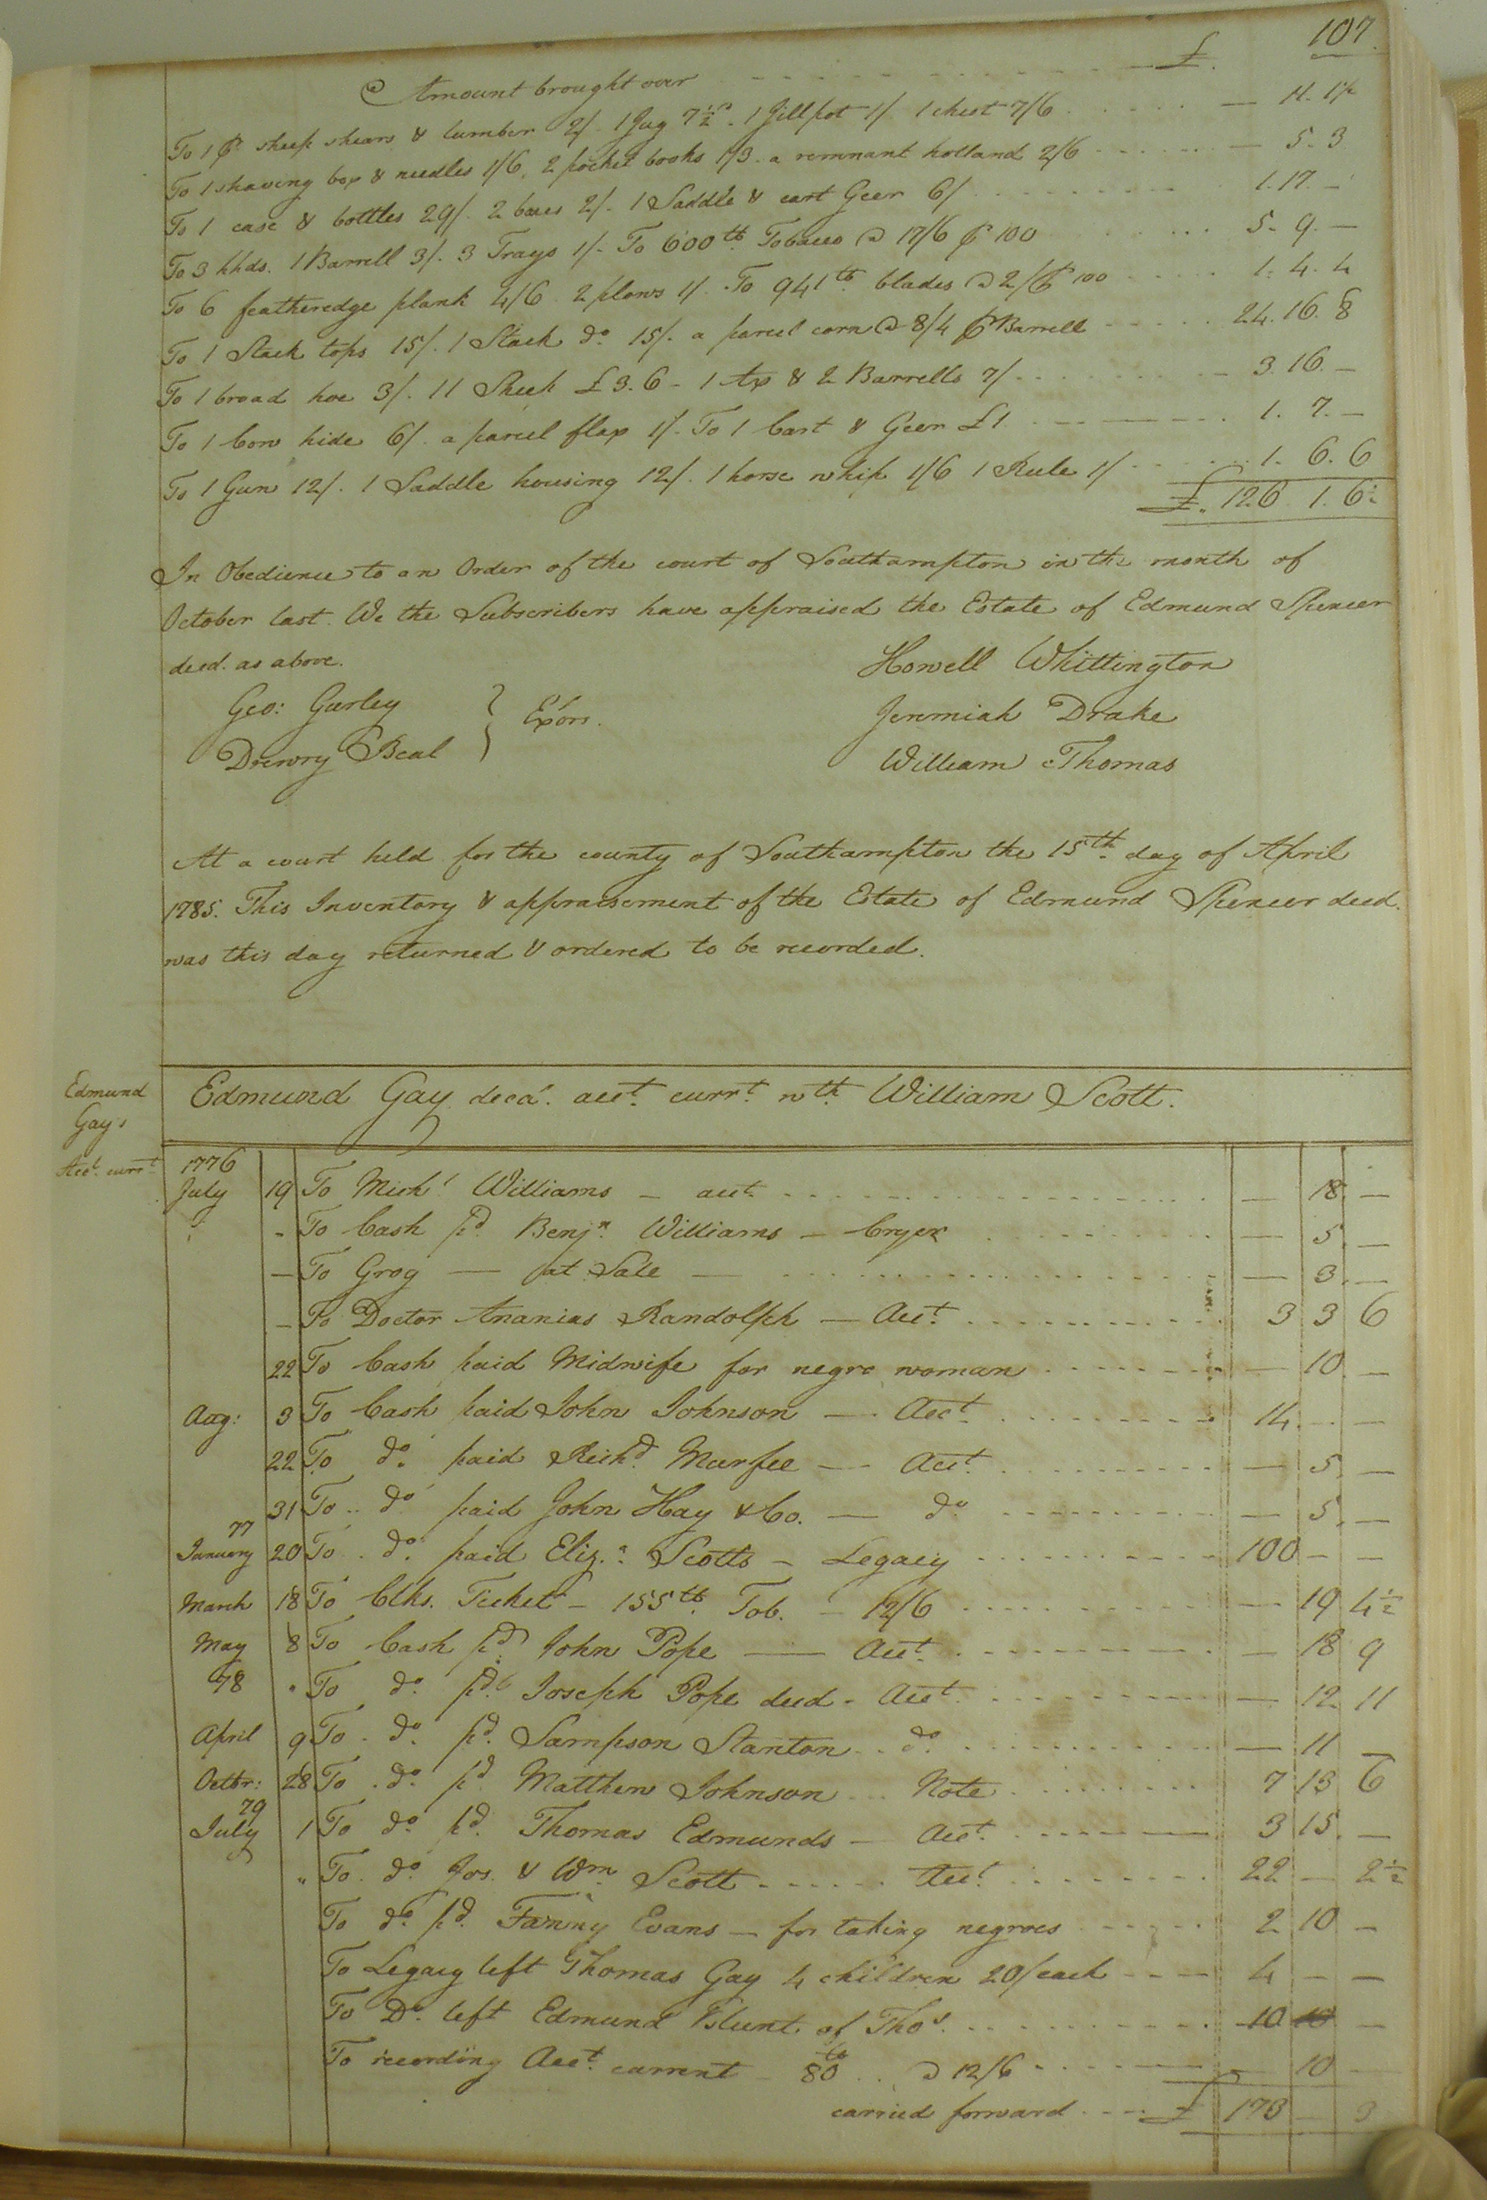 107.
Amount brought over £.
To 1 pr. sheep shears & lumber 2/. 1 Jug 7½d. 1 Jillpot 1/. 1 chest 7/6 — 11. 1½
To 1 shaving box & needles 1/6, 2 pocket books 1/3. a remnant holland 2/6 — 5. 3
To 1 case & bottles 29/. 2 boxes 2/. 1 Saddle & cart Geer 6/ 1. 17. —
To 3 hhds. 1 Barrell 3/. 3 Trays 1/. To 600 lb. Tobacco @ 17/6 pr 100 5. 9. —
To 6 featheredge plank 4/6 2 plows 1/. To 941 lb. blades @ 2/ pr 100 1. 4. 4
To 1 Stack tops 15/. 1 Stack do. 15/. a parcel corn @ 8/4 pr Barrell 24. 16. 8
To 1 broad hoe 3/. 11 Sheep £3.6 - 1 Ax & 2 Barrells 7/ 3. 16. —
To 1 Cow hide 6/. a parcel flax 1/. To 1 Cart & Geer £1 1. 7. —
To 1 Gun 12/. 1 Saddle housing 12/. 1 horse whip 1/6 1 Rule 1/ 1. 6. 6
£. 126 1. 6½
In Obedience to an Order of the court of Southampton in the month of
October last. We the Subscribers have appraised the Estate of Edmund Spencer
decd. as above.
Howell Whittington
Geo: Gurley } Exors. Jeremiah Drake
Drewry Beal William Thomas
At a court held for the county of Southampton the 15th. day of April
1785. This Inventory & appraisement of the Estate of Edmund Spencer decd.
was this day returned & ordered to be recorded.
Edmund Gay's Acct. currt.
Edmund Gay decd. acct. currt. wth. William Scott.
1776
July 19 To Mich'l Williams — acct. — 18. —
- To Cash pd. Benjn. Williams — Cryer — 5. —
— To Grog — at Sale — — 3. —
— To Doctor Ananias Randolph — Acct. 3 3 6
22 To Cash paid Midwife for negro woman — 10 —
Aug: 3 To Cash paid John Johnson — Acct. 14 — —
22 To do. paid Richd. Murfee — Acct. — 5. —
31 To do. paid John Hay & Co. — do — 5. —
77
January 20 To do. paid Eliza. Scotts — Legacy 100 — —
March 18 To Clks. Ticket — 155 lb. Tob. — 12/6 — 19 4½
May 8 To Cash pd. John Pope — Acct. — 18 9
78 " To do. pd. Joseph Pope decd. Acct. — 12 11
April 9 To do. pd. Sampson Stanton do. — 11 —
Octbr: 28 To do. pd. Matthew Johnson Note 7 13 6
79
July 1 To do. pd. Thomas Edmunds — Acct. 3 15. —
" To do. Jos. & Wm. Scott Acct. 22 — 2½
To do. pd. Fanny Evans — for taking negroes 2 10 —
To Legacy left Thomas Gay 4 children 20/ each 4 — —
To Do. left Edmund Blunt of Thos. 10 10 —
To recording Acct. current 80 lb @ 12/6 — 10 —
carried forward £ 173 — 3